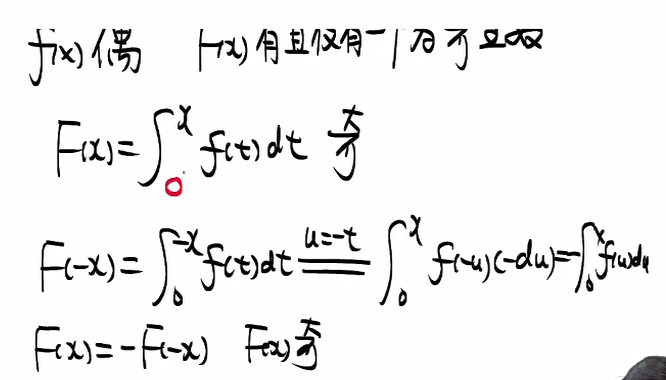 f(x)偶 F(x)有且仅有一个为奇函数
F(x)=∫₀ˣ f(t)dt 奇
F(-x)=∫₀⁻ˣ f(t)dt u=-t ∫₀ˣ f(-u)(-du)=-∫₀ˣ f(u)du
F(x)=-F(-x) F(x)奇